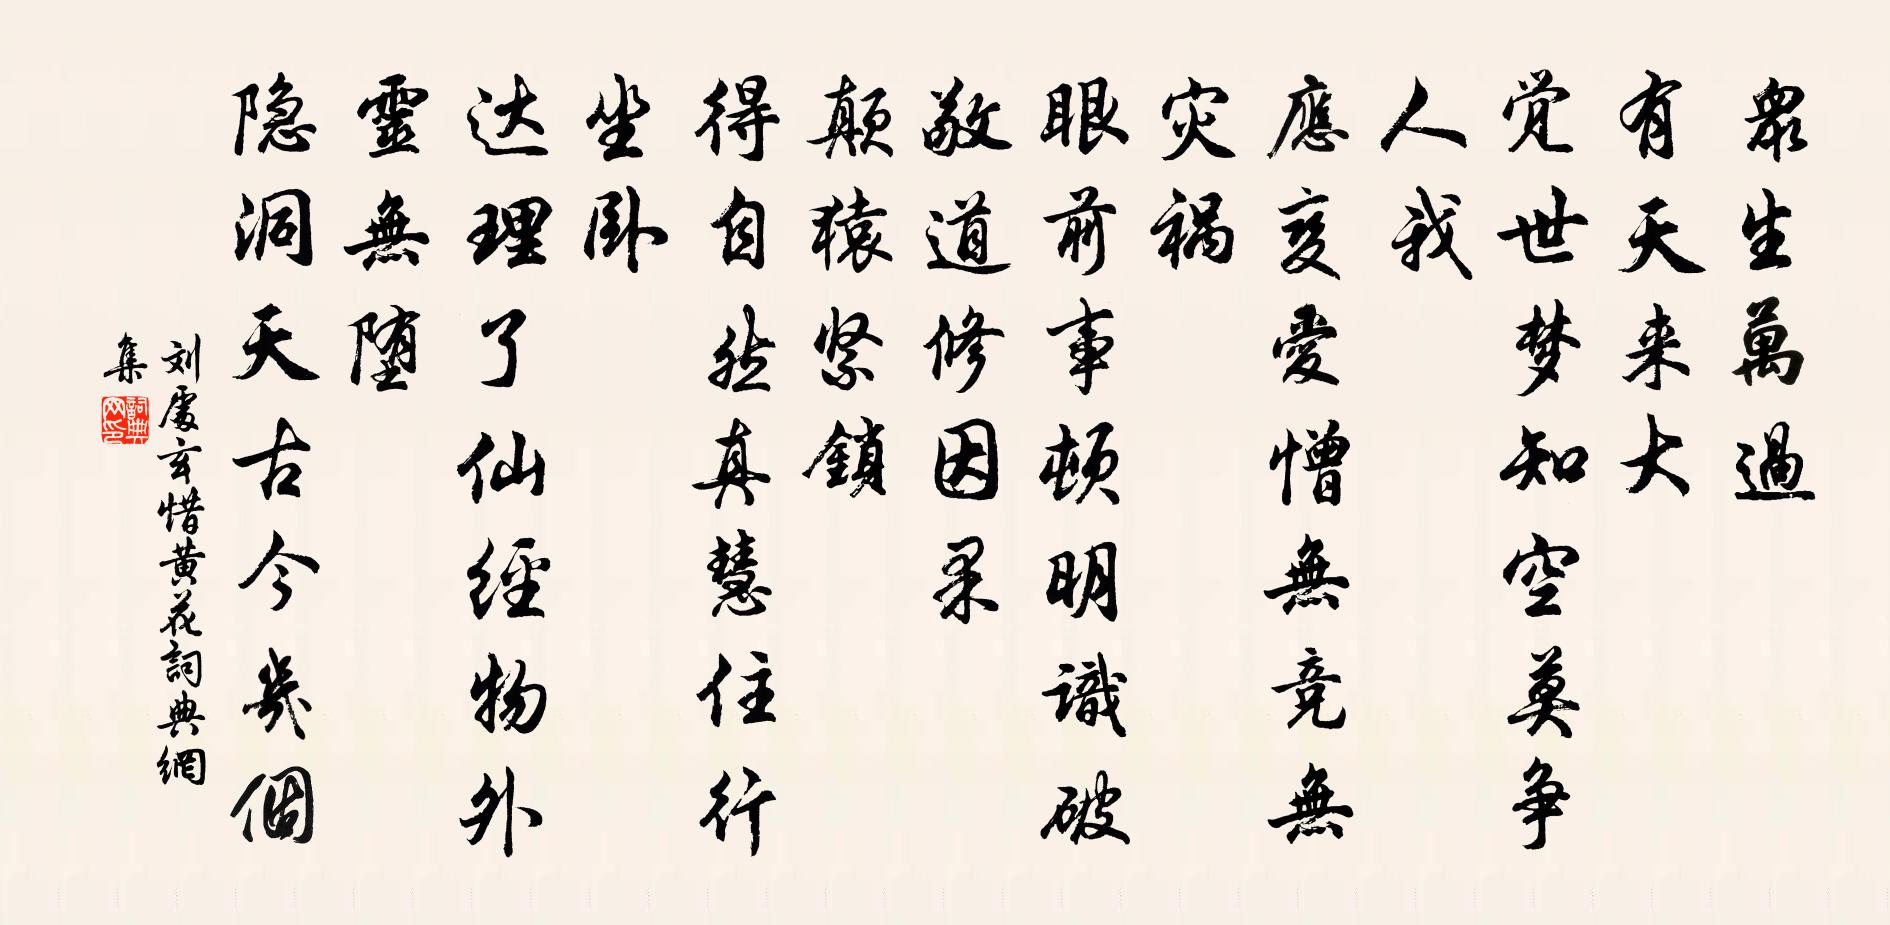 衆生萬過
有天来大
覚世梦知空莫争
人我
應变愛憎無竞無
灾祸
眼前事顿明識破
敬道修因果
颠猿紧鎖
得自然真慧住行
坐卧
达理了仙經物外
靈無堕
隐洞天古今幾個
刘處玄惜黄花詞典網
集
詞典
网印